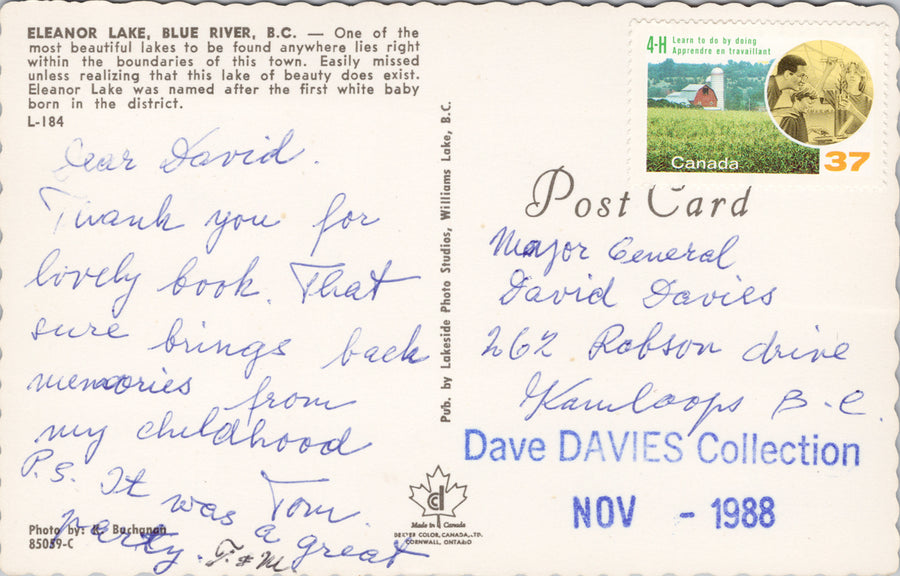 ELEANOR LAKE, BLUE RIVER, B.C. — One of the
most beautiful lakes to be found anywhere lies right
within the boundaries of this town. Easily missed
unless realizing that this lake of beauty does exist.
Eleanor Lake was named after the first white baby
born in the district.
L-184
Dear David.
Thank you for
lovely book. That
sure brings back
memories from
my childhood
Tom
P.S. It was a great
party. T. & M
Photo by: R. Buchanan
85039-C
Pub. by Lakeside Photo Studios, Williams Lake, B.C.
4-H Learn to do by doing
Apprendre en travaillant
Canada
37
Post Card
Major General
David Davies
262 Robson drive
Kamloops B-C.
Dave DAVIES Collection
NOV - 1988
Made in Canada
DEXTER COLOR, CANADA, LTD.
CORNWALL, ONTARIO